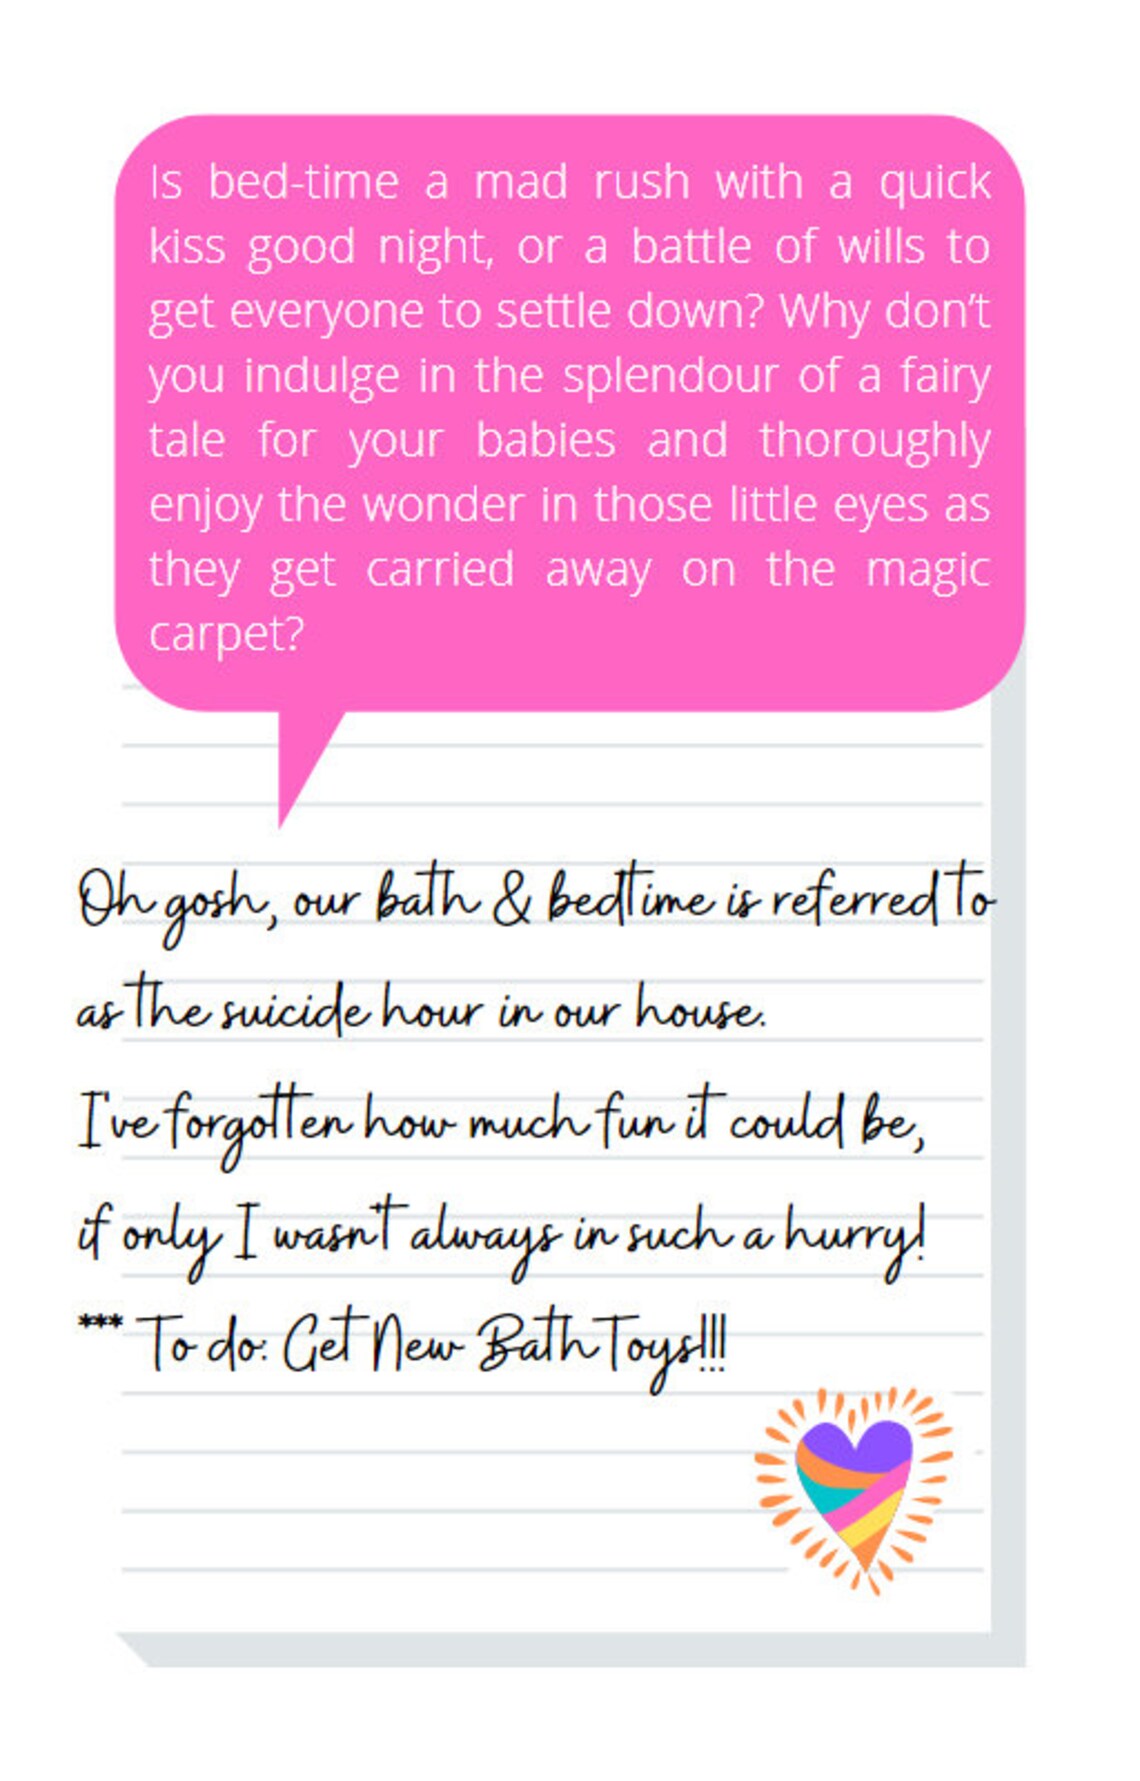 Is bed-time a mad rush with a quick
kiss good night, or a battle of wills to
get everyone to settle down? Why don’t
you indulge in the splendour of a fairy
tale for your babies and thoroughly
enjoy the wonder in those little eyes as
they get carried away on the magic
carpet?
Oh gosh, our bath & bedtime is referred to
as the suicide hour in our house.
I've forgotten how much fun it could be,
if only I wasn't always in such a hurry!
*** To do: Get New Bath Toys!!!